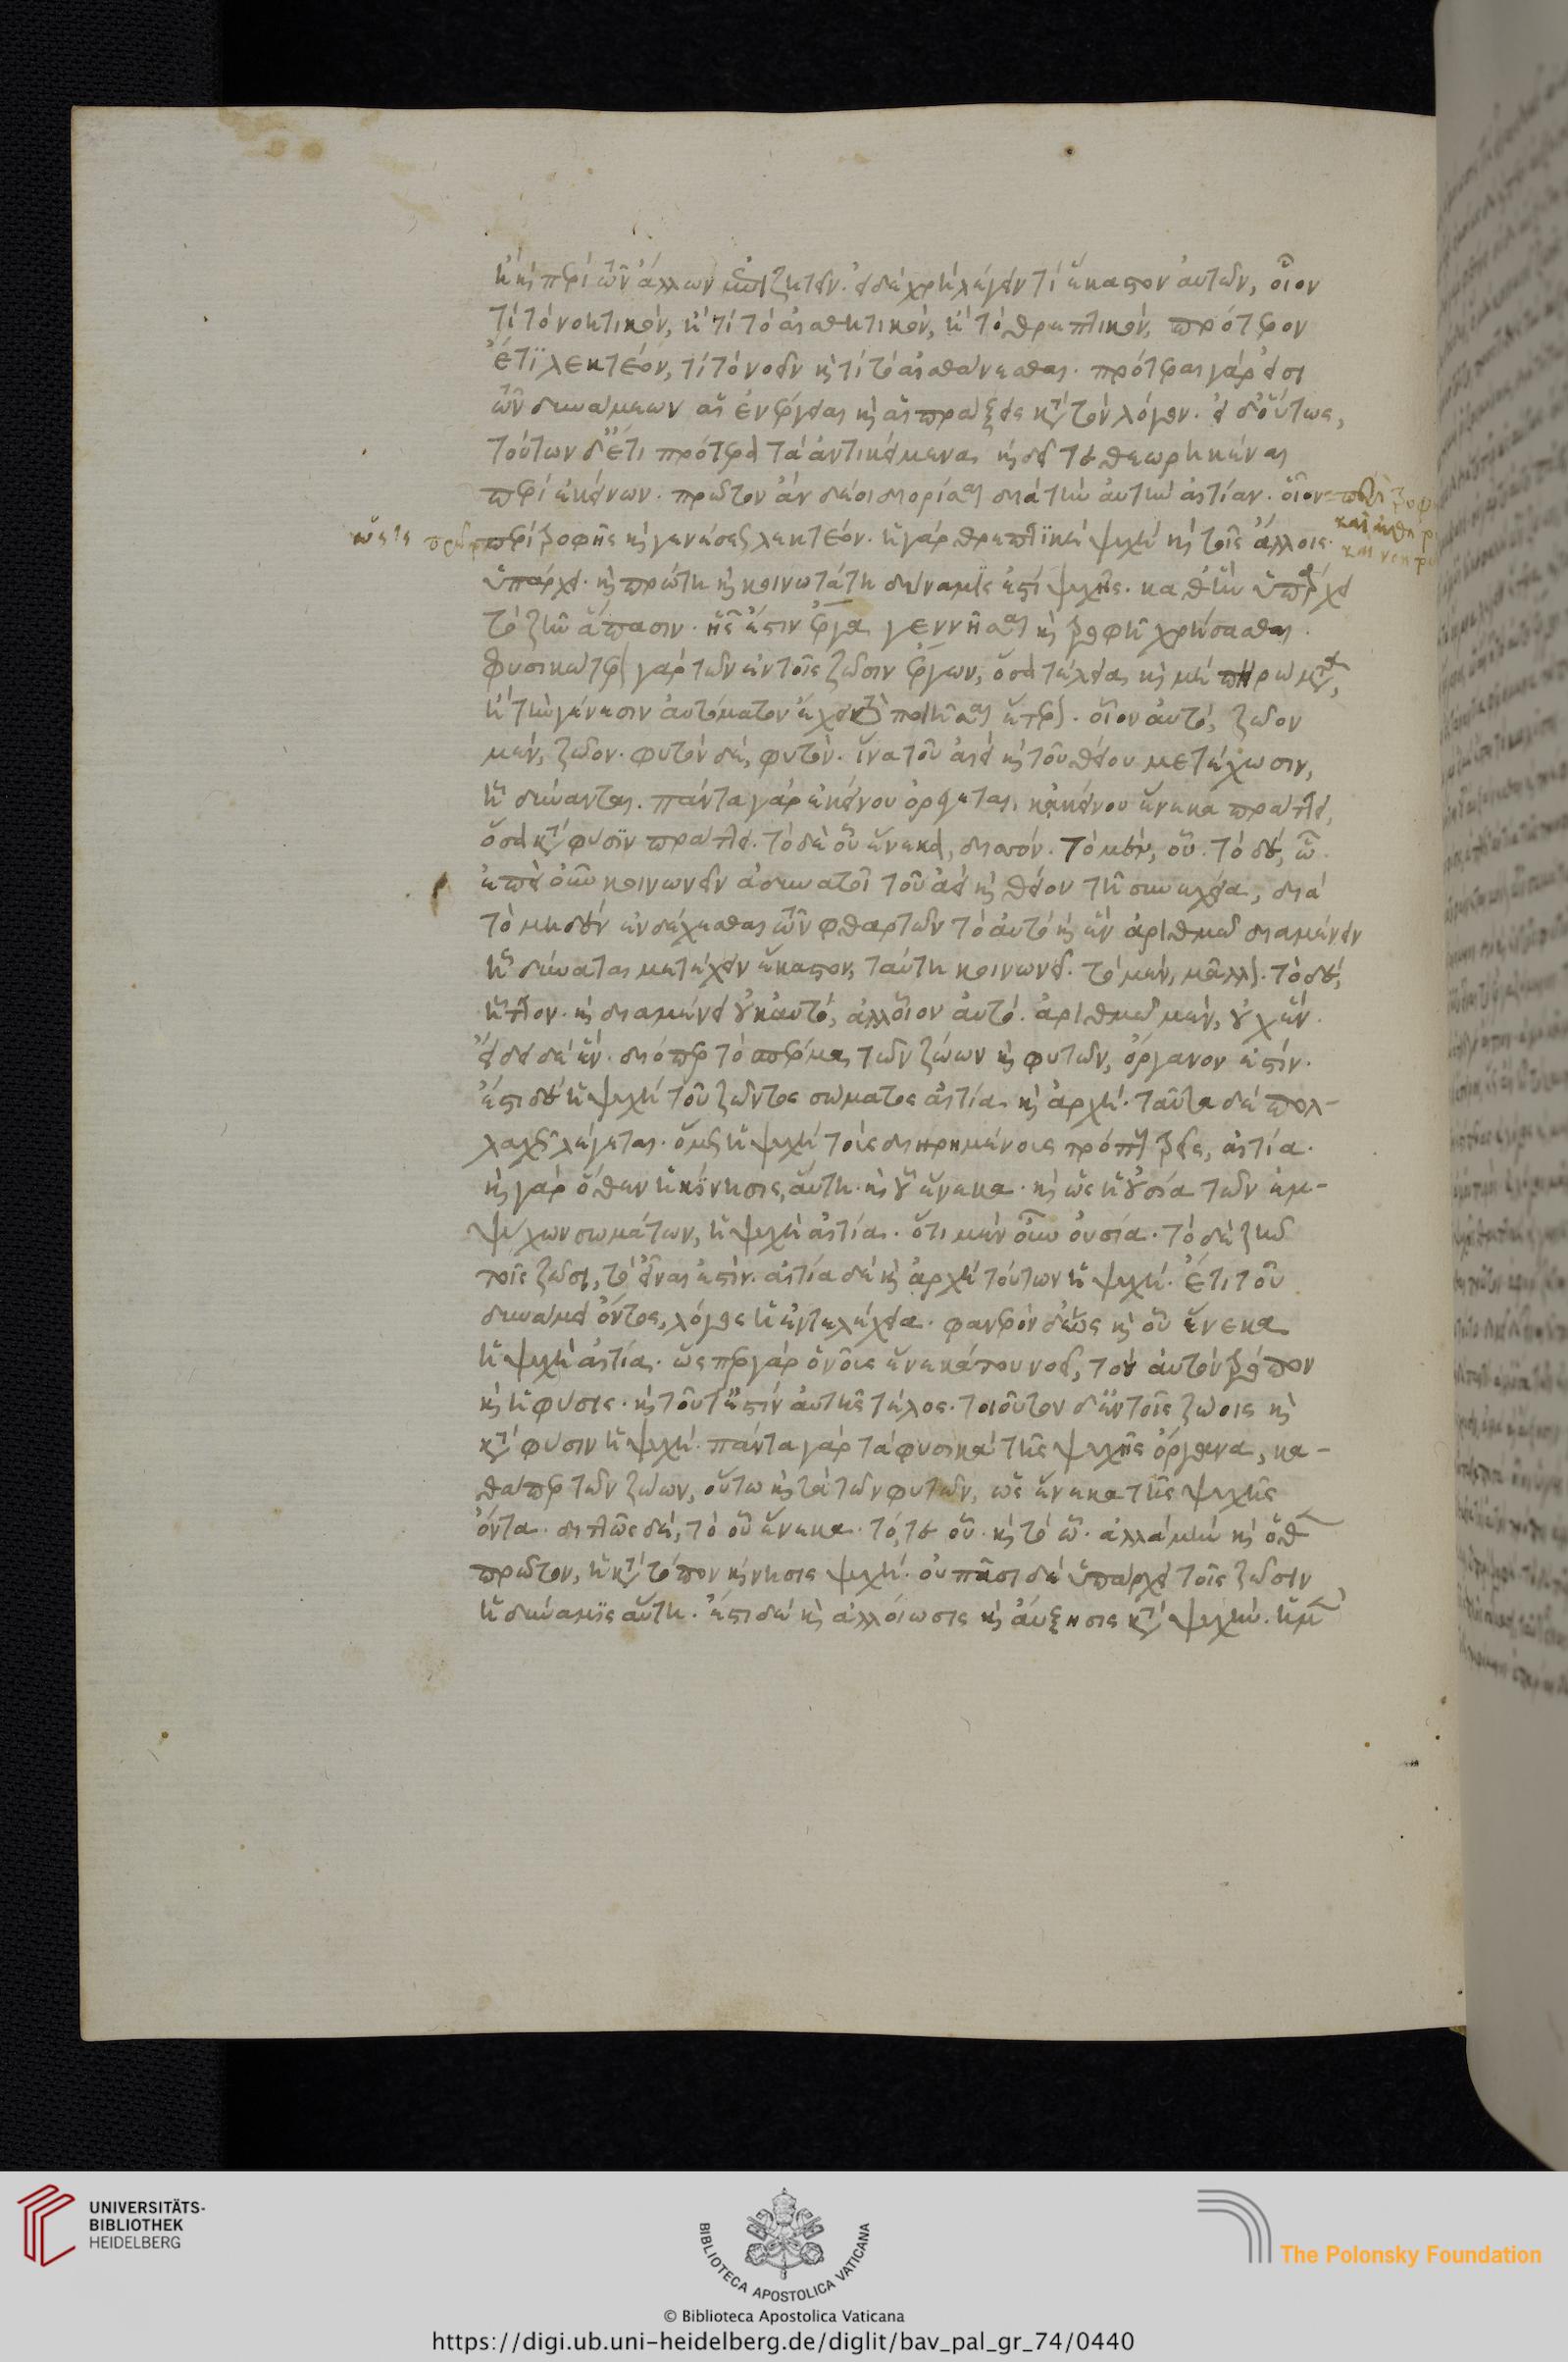 ἢ καὶ περὶ τῶν ἄλλων ἐπιζητεῖν. εἰ δὲ χρὴ λέγειν τί ἕκαστον αὐτῶν, οἷον
τί τὸ νοητικὸν, ἢ τί τὸ αἰσθητικὸν, ἢ τὸ θρεπτικὸν, πρότερον
ἔτι λεκτέον, τί τὸ νοεῖν καὶ τί τὸ αἰσθάνεσθαι. πρότεραι γάρ εἰσι
τῶν δυνάμεων αἱ ἐνέργειαι καὶ αἱ πράξεις κατὰ τὸν λόγον. εἰ δ' οὕτως,
τούτων δ' ἔτι πρότερα τὰ ἀντικείμενα καὶ δεῖ τεθεωρηκέναι
περὶ ἐκείνων. πρῶτον ἂν δέοι διορίσαι διὰ τὴν αὐτὴν αἰτίαν. οἷον περὶ τροφ
ὥστε πρῶτον περὶ τροφῆς καὶ γενέσεως λεκτέον. ἡ γὰρ θρεπτικὴ ψυχὴ καὶ τοῖς ἄλλοις
ὑπάρχει. καὶ πρώτη καὶ κοινωτάτη δύναμίς ἐστι ψυχῆς. καθ' ἣν ὑπάρχει
τὸ ζῆν ἅπασιν. ἧς ἐστιν ἔργα γεννῆσαι καὶ τροφῇ χρῆσθαι.
φυσικώτατον γὰρ τῶν ἐν τοῖς ζῶσιν ἔργων, ὅσα τέλεια καὶ μὴ πηρώματα,
ἢ τὴν γένεσιν αὐτόματον ἔχει τὸ ποιῆσαι ἕτερον. οἷον αὐτό, ζῶον
μὲν, ζῶον. φυτὸν δὲ, φυτόν. ἵνα τοῦ ἀεὶ καὶ τοῦ θείου μετέχωσιν,
ἣ δύνανται. πάντα γὰρ ἐκείνου ὀρέγεται, κἀκείνου ἕνεκα πράττει,
ὅσα κατὰ φύσιν πράττει. τὸ δὲ οὗ ἕνεκα, διττόν. τὸ μὲν, οὗ. τὸ δὲ, ᾧ.
ἐπεὶ οὖν κοινωνεῖν ἀδυνατεῖ τοῦ ἀεὶ καὶ θείου τῇ συνεχείᾳ, διὰ
τὸ μηδὲν ἐνδέχεσθαι τῶν φθαρτῶν τὸ αὐτὸ καὶ ἓν ἀριθμῷ διαμένειν
ᾗ δύναται μετέχειν ἕκαστον, ταύτῃ κοινωνεῖ. τὸ μὲν, μᾶλλον. τὸ δὲ,
ἧττον. καὶ διαμένει οὐκ αὐτό, ἀλλ' οἷον αὐτό. ἀριθμῷ μὲν, οὐχ ἕν.
εἴδει δὲ ἕν. διόπερ τὸ σπέρμα τῶν ζώων καὶ φυτῶν, ὄργανόν ἐστιν.
ἔστι δὲ ἡ ψυχὴ τοῦ ζῶντος σώματος αἰτία καὶ ἀρχή. ταῦτα δὲ πολ-
λαχῶς λέγεται. ὁμοίως ἡ ψυχὴ τοῖς διῃρημένοις τρόποις τρεῖς, αἰτία.
καὶ γὰρ ὅθεν ἡ κίνησις, αὕτη. καὶ οὗ ἕνεκα. καὶ ὡς ἡ οὐσία τῶν ἐμ-
ψύχων σωμάτων, ἡ ψυχὴ αἰτία. ὅτι μὲν οὖν οὐσία. τὸ δὲ ζῆν
τοῖς ζῶσι, τὸ εἶναί ἐστιν. αἰτία δὲ καὶ ἀρχὴ τούτων ἡ ψυχή. ἔτι τοῦ
δυνάμει ὄντος, λόγος ἡ ἐντελέχεια. φανερὸν δ' ὡς καὶ οὗ ἕνεκα
ἡ ψυχὴ αἰτία. ὥσπερ γὰρ ὁ νοῦς ἕνεκά του ποιεῖ, τὸν αὐτὸν τρόπον
καὶ ἡ φύσις. καὶ τοῦτ' ἔστιν αὐτῆς τέλος. τοιοῦτον δ' ἐν τοῖς ζώοις καὶ
κατὰ φύσιν ἡ ψυχή. πάντα γὰρ τὰ φυσικὰ τῆς ψυχῆς ὄργανα, κα-
θάπερ τῶν ζώων, οὕτω καὶ τὰ τῶν φυτῶν, ὡς ἕνεκα τῆς ψυχῆς
ὄντα. διττῶς δὲ, τὸ οὗ ἕνεκα. τό, τε οὗ. καὶ τὸ ᾧ. ἀλλὰ μὴν καὶ ὅθεν
πρῶτον, ἡ κατὰ τόπον κίνησις ψυχή. οὐ πᾶσι δὲ ὑπάρχει τοῖς ζῶσιν
ἡ δύναμις αὕτη. ἔστι δὲ καὶ ἀλλοίωσις καὶ αὔξησις κατὰ ψυχήν. ἡ μὲν
UNIVERSITÄTS-
BIBLIOTHEK
HEIDELBERG
BIBLIOTECA APOSTOLICA VATICANA
The Polonsky Foundation
© Biblioteca Apostolica Vaticana
https://digi.ub.uni-heidelberg.de/diglit/bav_pal_gr_74/0440